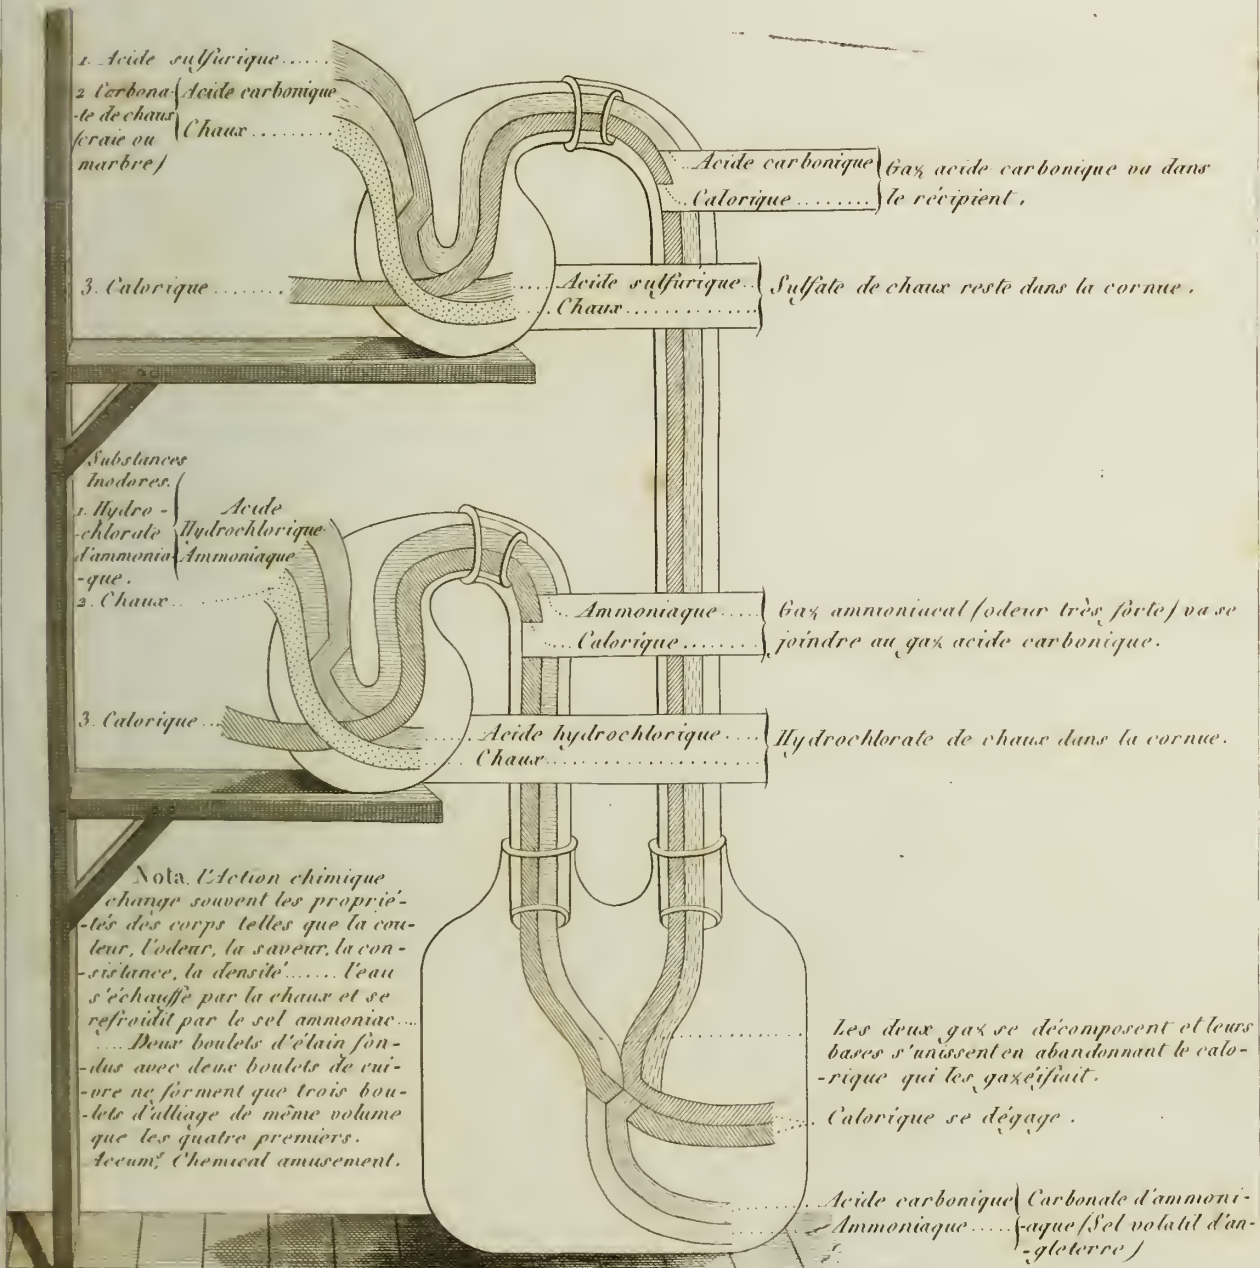 1. Acide sulfurique......
2 Carbona- { Acide carbonique
-te de chaux { Chaux..........
(craie ou
marbre)
Acide carbonique } Gaz acide carbonique va dans
Calorique ........ } le récipient.
3. Calorique .......
Acide sulfurique.. } Sulfate de chaux reste dans la cornue.
Chaux............
Substances
Inodores.
1. Hydro- { Acide
-chlorate { Hydrochlorique
d'ammonia- { Ammoniaque
-que.
2. Chaux..
Ammoniaque ..... } Gaz ammoniacal (odeur très forte) va se
Calorique....... } joindre au gaz acide carbonique.
3. Calorique...
Acide hydrochlorique .... } Hydrochlorate de chaux dans la cornue.
Chaux..................
Nota. l'Action chimique
change souvent les proprié-
-tés des corps telles que la cou-
leur, l'odeur, la saveur, la con-
-sistance, la densité....... l'eau
s'échauffe par la chaux et se
refroidit par le sel ammoniac....
.... Deux boulets d'étain fon-
-dus avec deux boulets de cui-
-vre ne forment que trois bou-
-lets d'alliage de même volume
que les quatre premiers.
Accum.s Chemical amusement.
Les deux gaz se décomposent et leurs
bases s'unissent en abandonnant le calo-
-rique qui les gazéifiait.
Calorique se dégage.
Acide carbonique { Carbonate d'ammoni-
Ammoniaque ..... { -aque (Sel volatil d'an-
-gleterre)